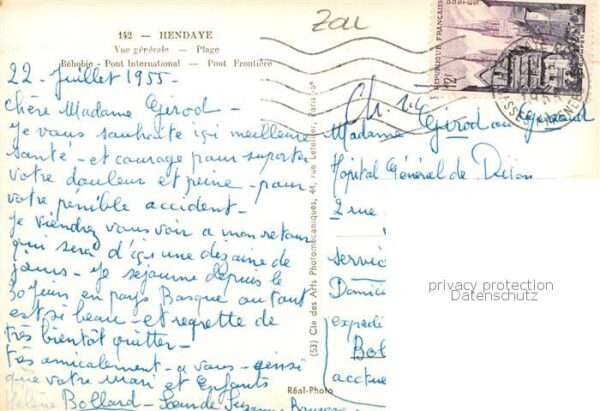 142 — HENDAYE
Vue générale — Plage
Béhobie - Pont International — Pont Frontière
22 - Juillet 1955 -
Chère Madame Girod -
Je vous souhaite ici meilleure
santé - et courage pour suporter
votre douleur et peine - pour
votre pénible accident -
Je viendrez vous voir a mon retour
qui sera d'ici une dezaine de
jours - Je séjourne depuis le
30 juin en pays Basque ou tout
est si beau - et regrette de
très bientôt quitter -
très amicalement - a vous - ainsi
que votre Mari et Enfants
Hélène Bollard -
(53) Cie des Arts Photomécaniques, 44, rue Letellier, Paris 15e
Réal-Photo
RÉPUBLIQUE FRANÇAISE
POSTES
12F
Madame Girod ou Giraud
Hôpital Général de Dijon
2 rue
service
Domici
expédi
Bol
actue
privacy protection
Datenschutz